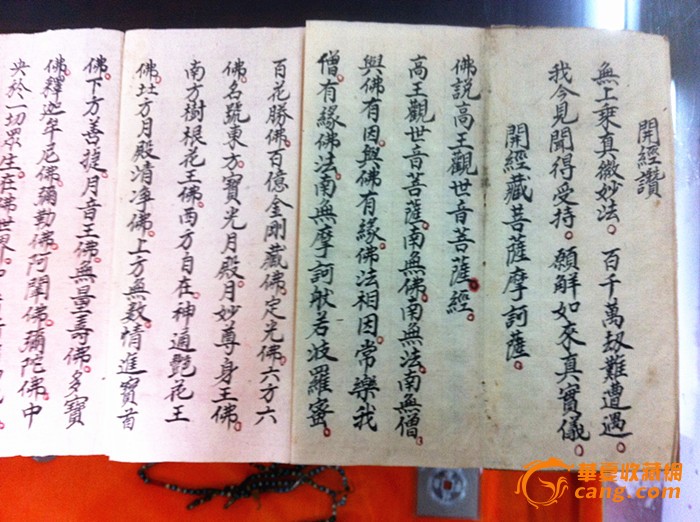 開經讚
無上乘真微妙法。百千萬劫難遭遇。
我今見聞得受持。願解如來真實儀。
開經藏菩薩摩訶薩。
佛說高王觀世音菩薩經。
高王觀世音菩薩。南無佛。南無法。南無僧。
與佛有因。與佛有緣。佛法相因。常樂我
僧。有緣佛法。南無摩訶般若波羅蜜。
百花勝佛。百億金剛藏佛。定光佛。六方六
佛名號。東方寶光月殿。月妙尊身王佛。
南方樹根花王佛。西方自在神通艷花王
佛。北方月殿清净佛。上方無数情進寶首
佛。下方善捷月音王佛。無量壽佛。多寶
佛。釋迦牟尼佛。彌勒佛。阿閦佛。彌陀佛。中
央於一切眾生。在佛世界。
華臺收藏網
cang.com